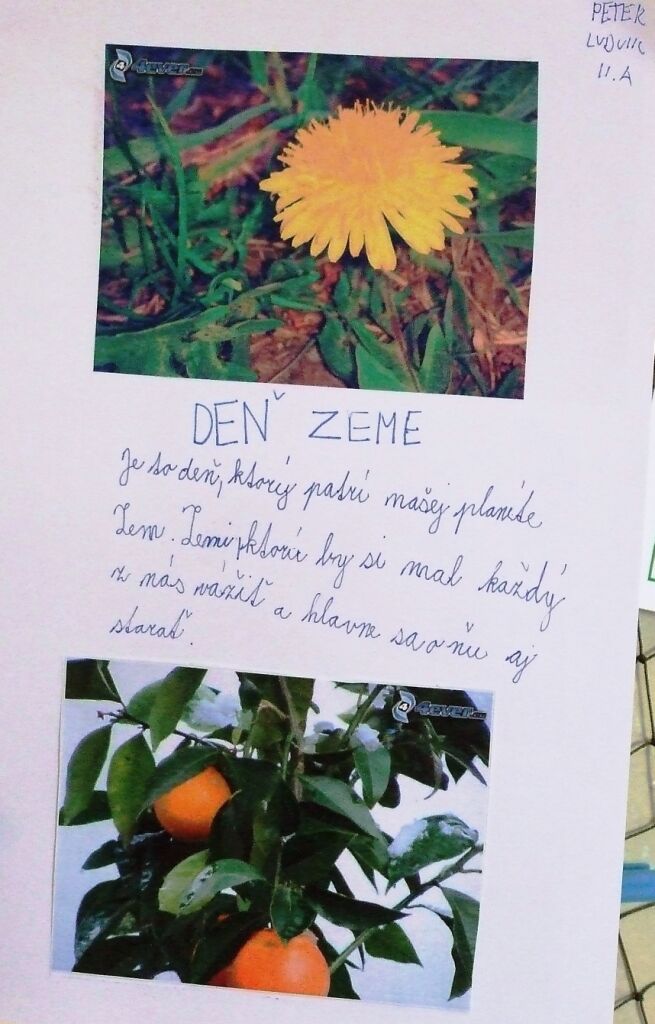 PETER
LUDVIK
II.A
4ever.eu
DEŇ ZEME
Je to deň, ktorý patrí našej planéte
Zem. Zemi, ktorú by si mal každý
z nás vážiť a hlavne sa o ňu aj
starať.
4ever.eu